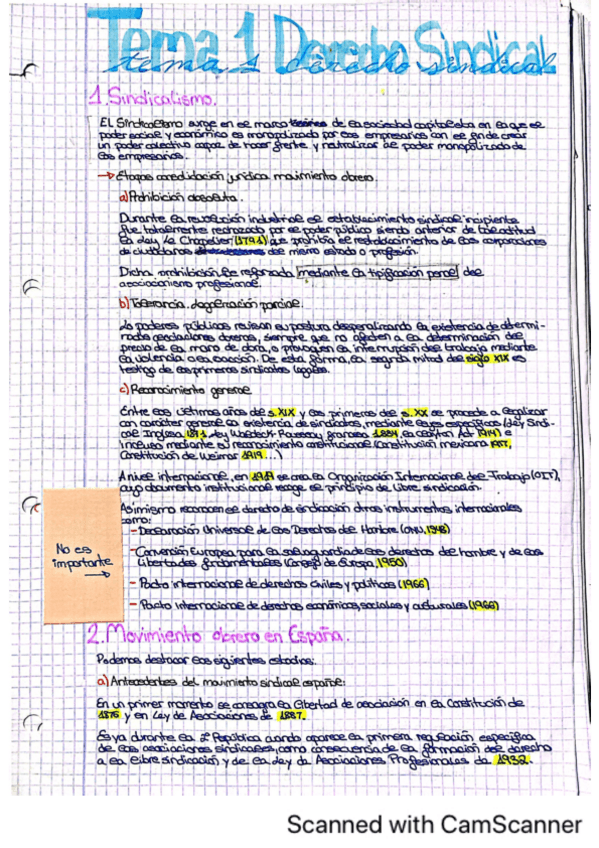 Tema 1 Derecho Sindical
tema 1 derecho sindical
1. Sindicalismo.
El Sindicalismo surge en el marco de la sociedad capitalista en la que el
poder social y económico es monopolizado por los empresarios con el fin de crear
un poder colectivo capaz de hacer frente y neutralizar el poder monopolizado de
los empresarios.
→ Etapas consolidación jurídica movimiento obrero.
a) Prohibición absoluta.
Durante la revolución industrial el establecimiento sindical incipiente
fue totalmente rechazado por el poder público siendo anterior de tal actitud
la Ley Le Chapelier (1791) que prohibía el restablecimiento de las corporaciones
de ciudadanos del mismo estado o profesión.
Dicha prohibición fue reforzada mediante la tipificación penal del
asociacionismo profesional.
b) Tolerancia. legalización parcial.
Lo poderes públicos revisan su postura despenalizando la existencia de determi-
nadas asociaciones obreras, siempre que no afecten a la determinación del
precio de la mano de obra, o provoquen la interrupción del trabajo mediante
la violencia o la coacción. De esta forma, la segunda mitad del siglo XIX es
testigo de los primeros sindicatos legales.
c) Reconocimiento general
Entre los últimos años del s. XIX y los primeros del s. XX se procede a legalizar
con carácter general la existencia de sindicatos, mediante leyes específicas (Ley Sindi-
cal Inglesa 1871, Ley Waldeck Rousseau francesa 1884, la Clayton Act 1914) e
incluso mediante el reconocimiento constitucional (Constitución mexicana 1917,
Constitución de Weimar 1919...)
A nivel internacional, en 1919 se crea la Organización Internacional del Trabajo (OIT),
cuyo documento institucional recoge el principio de libre sindicación.
Asimismo reconocen el derecho de sindicación otros instrumentos internacionales
como:
- Declaración Universal de los Derechos del Hombre (ONU, 1948)
No es
importante
→
- Convención Europea para la salvaguardia de los derechos del hombre y de las
libertades fundamentales (Consejo de Europa, 1950)
- Pacto internacional de derechos civiles y políticos (1966)
- Pacto internacional de derechos económicos, sociales y culturales (1966)
2. Movimiento obrero en España.
Podemos destacar los siguientes estadios:
a) Antecedentes del movimiento sindical español:
En un primer momento se consagra la libertad de asociación en la Constitución de
1876 y en Ley de Asociaciones de 1887.
Es ya durante la 2ª República cuando aparece la primera regulación específica
de las asociaciones sindicales, como consecuencia de la formación del derecho
a la libre sindicación y de la Ley de Asociaciones Profesionales de 1932.
Scanned with CamScanner